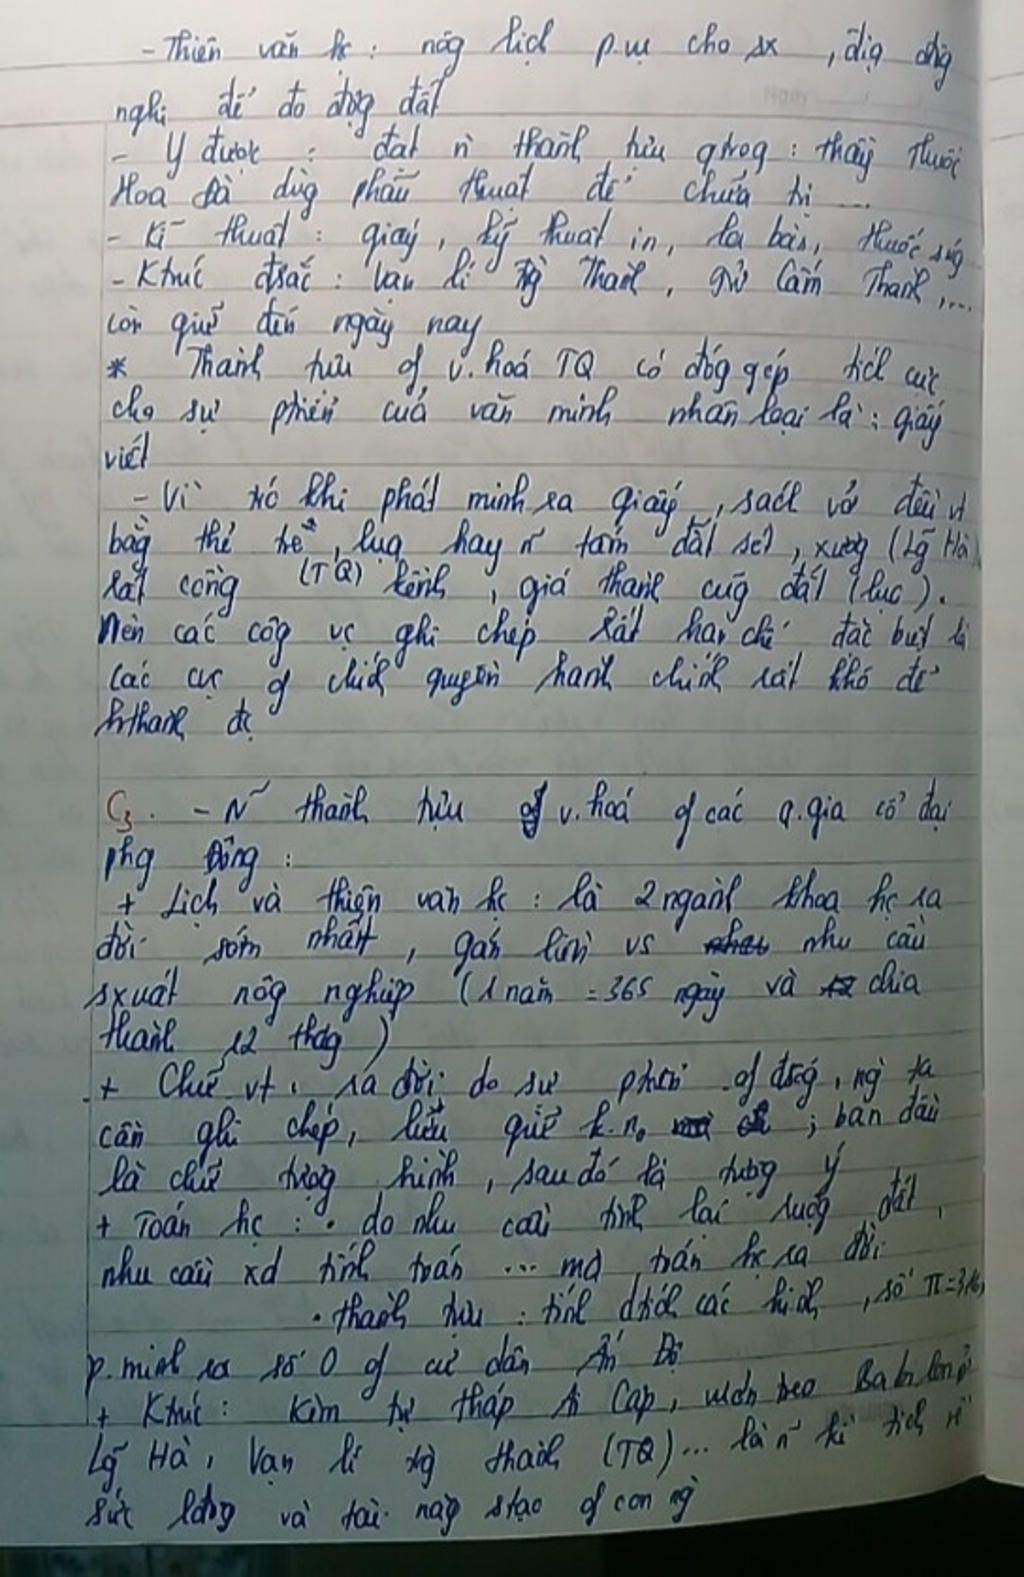 - Thiên văn hc : nôg lịch p.vụ cho sx , địa độg
nghi để đo độg đất
- Y dược : đạt n~ thành tựu qtrog : thầy thuốc
Hoa Đà dùg phẫu thuật để chữa trị ...
- Kĩ thuật : giấy , kỹ thuật in, la bàn, thuốc súg
- Khtrúc đsắc : Vạn lí Thành , Cấm Thành ,...
còn giữ đến ngày nay
* Thành tựu of v.hoá TQ có đóg góp tích cực
cho sự phtriển của văn minh nhân loại là : giấy
viết
- Vì trc khi phát minh ra giấy , sách vở đều vt
bằg thẻ tre , lụa hay n~ tấm đất sét , xươg (Lg Hà)
(TQ)
rất cồng kềnh , giá thành cũg đắt (lụa).
Nên các côg vc ghi chép rất hạn chế đặc biệt là
các of chíh quyền hành chíh rất khó để
hthành đc
C3. - N~ thành tựu of v.hoá of các q.gia cổ đại
phg Đôg :
+ Lịch và thiên văn hc : là 2 ngành khoa hc ra
đời sớm nhất , gắn liền vs nhu cầu
sxuất nôg nghiệp (1 năm = 365 ngày và chia
thành 12 thág)
+ Chữ vt : ra đời do sự phtriển of đsốg , ng ta
cần ghi chép, lưu giữ k.n0 ; ban đầu
là chữ tượg hình , sau đó là tượg ý
+ Toán hc : • do nhu cầu tính lại ruộg đất ,
nhu cầu xd tính toán ... mà toán hc ra đời
• thành tựu : tính dtích các hình , số π = 3,16,
p.minh ra số 0 of cư dân Ấn Độ
+ Khtrúc : Kim tự tháp Ai Cập , vườn treo Babilon ở
Lg Hà , Vạn lí thành (TQ) ... là n~ kì tích về
sức lđộg và tài năg stạo of con ng